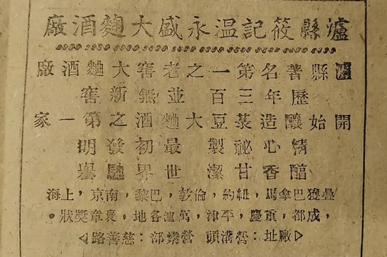 瀘縣筱記溫永盛大麯酒廠
瀘縣著名第一之老窖大麯酒廠
歷年三百並無新窖
開始釀造菉豆大麯酒之第一家
精心祕製最初發明
香甘潔世界馳譽
疊獲巴拿馬，紐約，倫敦，巴黎，南京，上海
，成都，重慶，平津，萬瀘各地，褒章獎狀。
廠址：營溝頭 營業部：慈善路